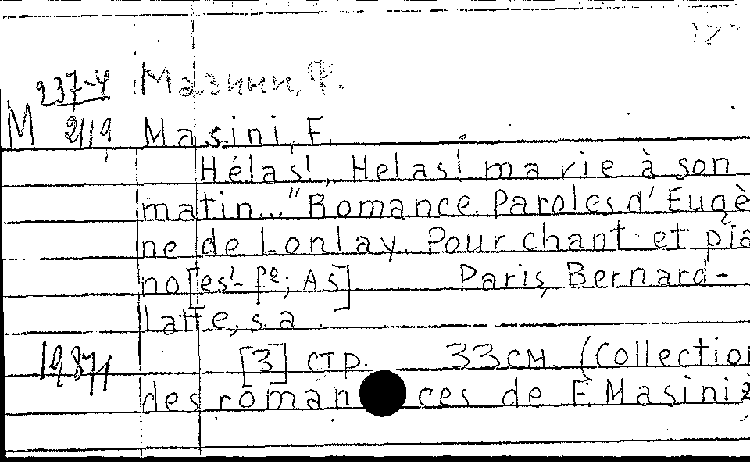 237-4 Мазини, Ф.
М 2119 Masini, F.
Hélas!, Helas! ma vie à son
matin..." Romance. Paroles d'Eugè
ne de Lonlay. Pour chant et pia
no [es¹-f²; As] Paris, Bernard-
latte, s.a.
1987/1 [3] стр. 33 см (Collection
des romances de F. Masini